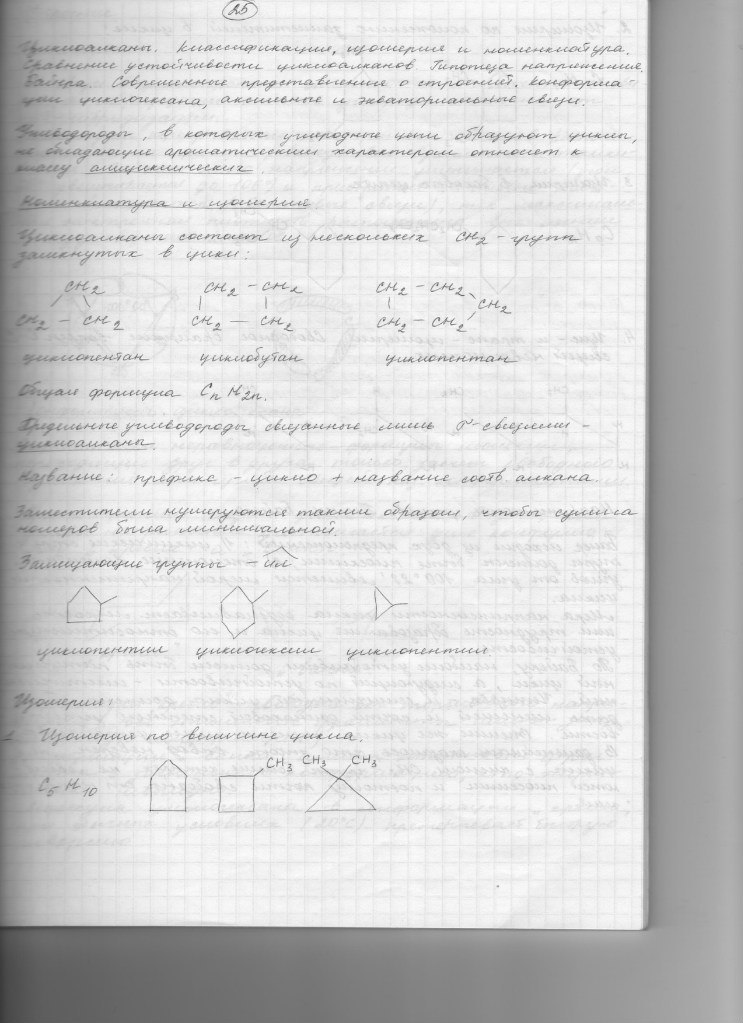 25
Циклоалканы. Классификация, изомерия и номенклатура.
Сравнение устойчивости циклоалканов Гипотеза напряжения
Байера. Современные представления о строении, конформа-
ции циклогексана, аксиальные и экваториальные связи.
Углеводороды, в которых углеродные цепи образуют циклы,
не обладающие ароматическим характером относят к
классу алициклических.
Номенклатура и изомерия
Циклоалканы состоят из нескольких CH2 - групп
замкнутых в цикл:
CH2 CH2 - CH2 CH2 - CH2
CH2
CH2 - CH2 CH2 - CH2 CH2 - CH2
циклопентан циклобутан циклопентан
Общая формула CnH2n.
Предельные углеводороды связанные лишь σ-связями -
циклоалканы.
Название: префикс - цикло + название соотв. алкана.
Заместители нумеруются таким образом, чтобы сумма
номеров была минимальной.
Замещающие группы - ил
циклопентил циклогексил циклопентил
Изомерия:
1 Изомерия по величине цикла.
CH3 CH3 CH3
C5H10